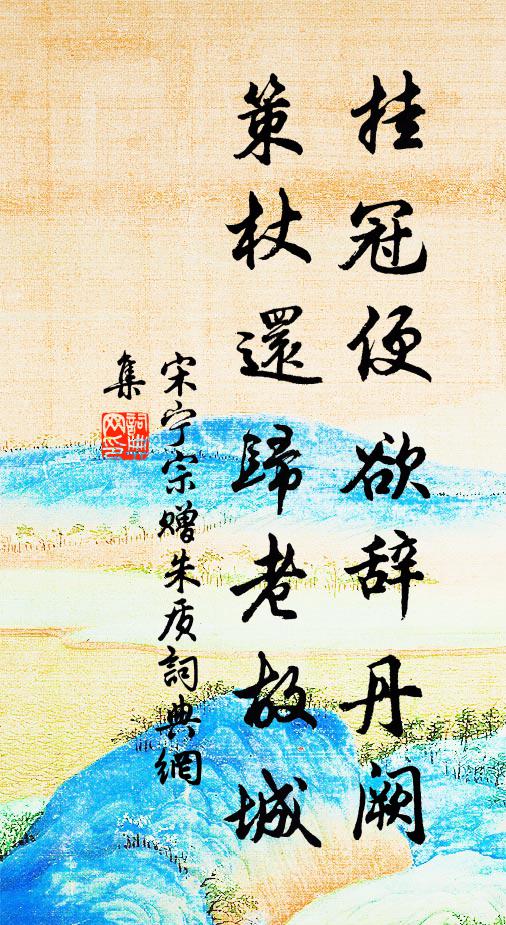 挂冠便欲辞丹阙
策杖還歸老故城
宋宁宗赠朱质詞典網
集
詞典网印